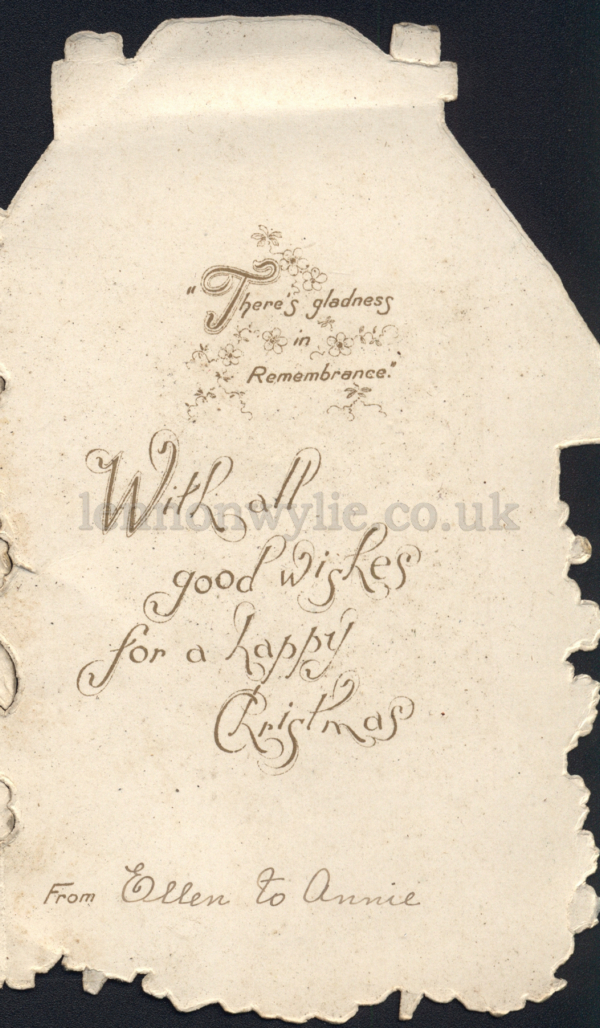 "There's gladness
in
Remembrance."
With all
lennonwylie.co.uk
good wishes
for a happy
Christmas
From Ellen to Annie